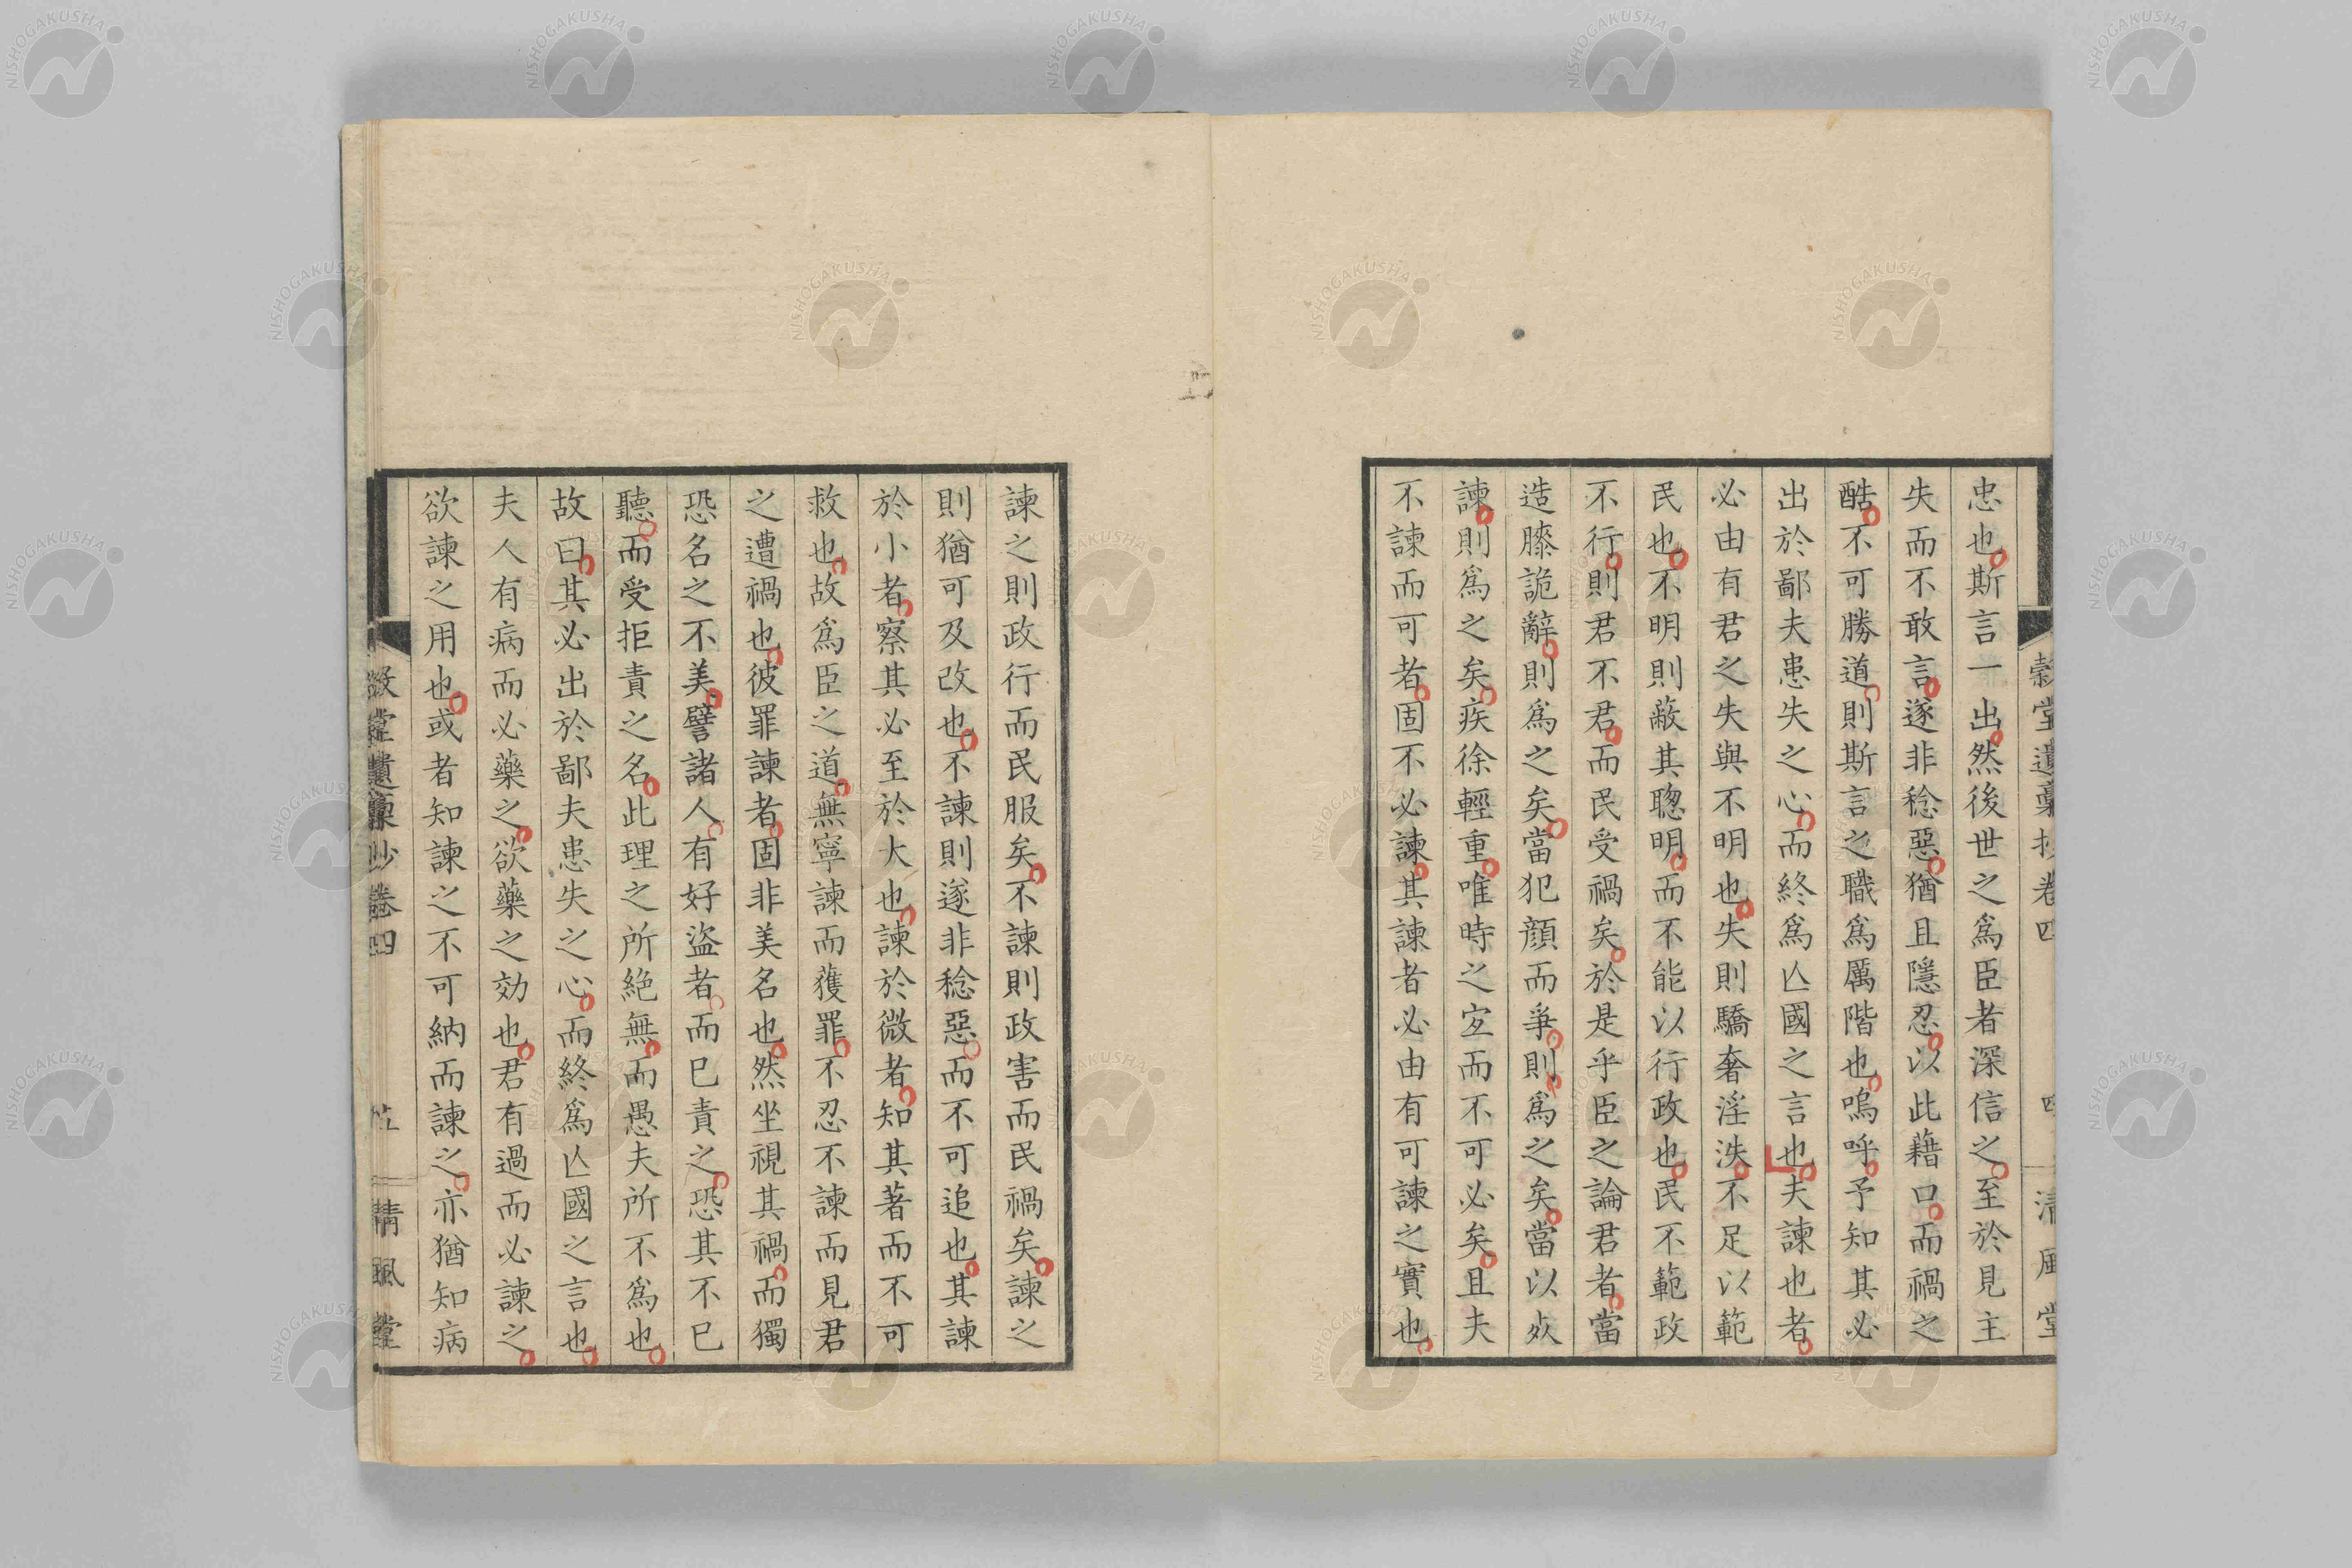 忠也斯言一出然後世之爲臣者深信之至於見主
失而不敢言遂非稔惡猶且隱忍以此藉口而禍之
酷不可勝道則斯言之職爲厲階也嗚呼予知其必
出於鄙夫患失之心而終爲亾國之言也夫諫也者
必由有君之失與不明也失則驕奢淫泆不足以範
民也不明則蔽其聰明而不能以行政也民不範政
不行則君不君而民受禍矣於是乎臣之論君者當
造膝詭辭則爲之矣當犯顔而爭則爲之矣當以死
諫則爲之矣疾徐輕重唯時之宜而不可必矣且夫
不諫而可者固不必諫其諫者必由有可諫之實也
諫之則政行而民服矣不諫則政害而民禍矣諫之
則猶可及改也不諫則遂非稔惡而不可追也其諫
於小者察其必至於大也諫於微者知其著而不可
救也故爲臣之道無寧諫而蒦罪不忍不諫而見君
之遭禍也彼罪諫者固非美名也然坐視其禍而獨
恐名之不美譬諸人有好盜者而已責之恐其不已
聽而受拒責之名此理之所絕無而愚夫所不爲也
故曰其必出於鄙夫患失之心而終爲亾國之言也
夫人有病而必藥之欲藥之効也君有過而必諫之
欲諫之用也或者知諫之不可納而諫之亦猶知病
穀堂遺稾抄卷四
清風堂
NISHOGAKUSHA